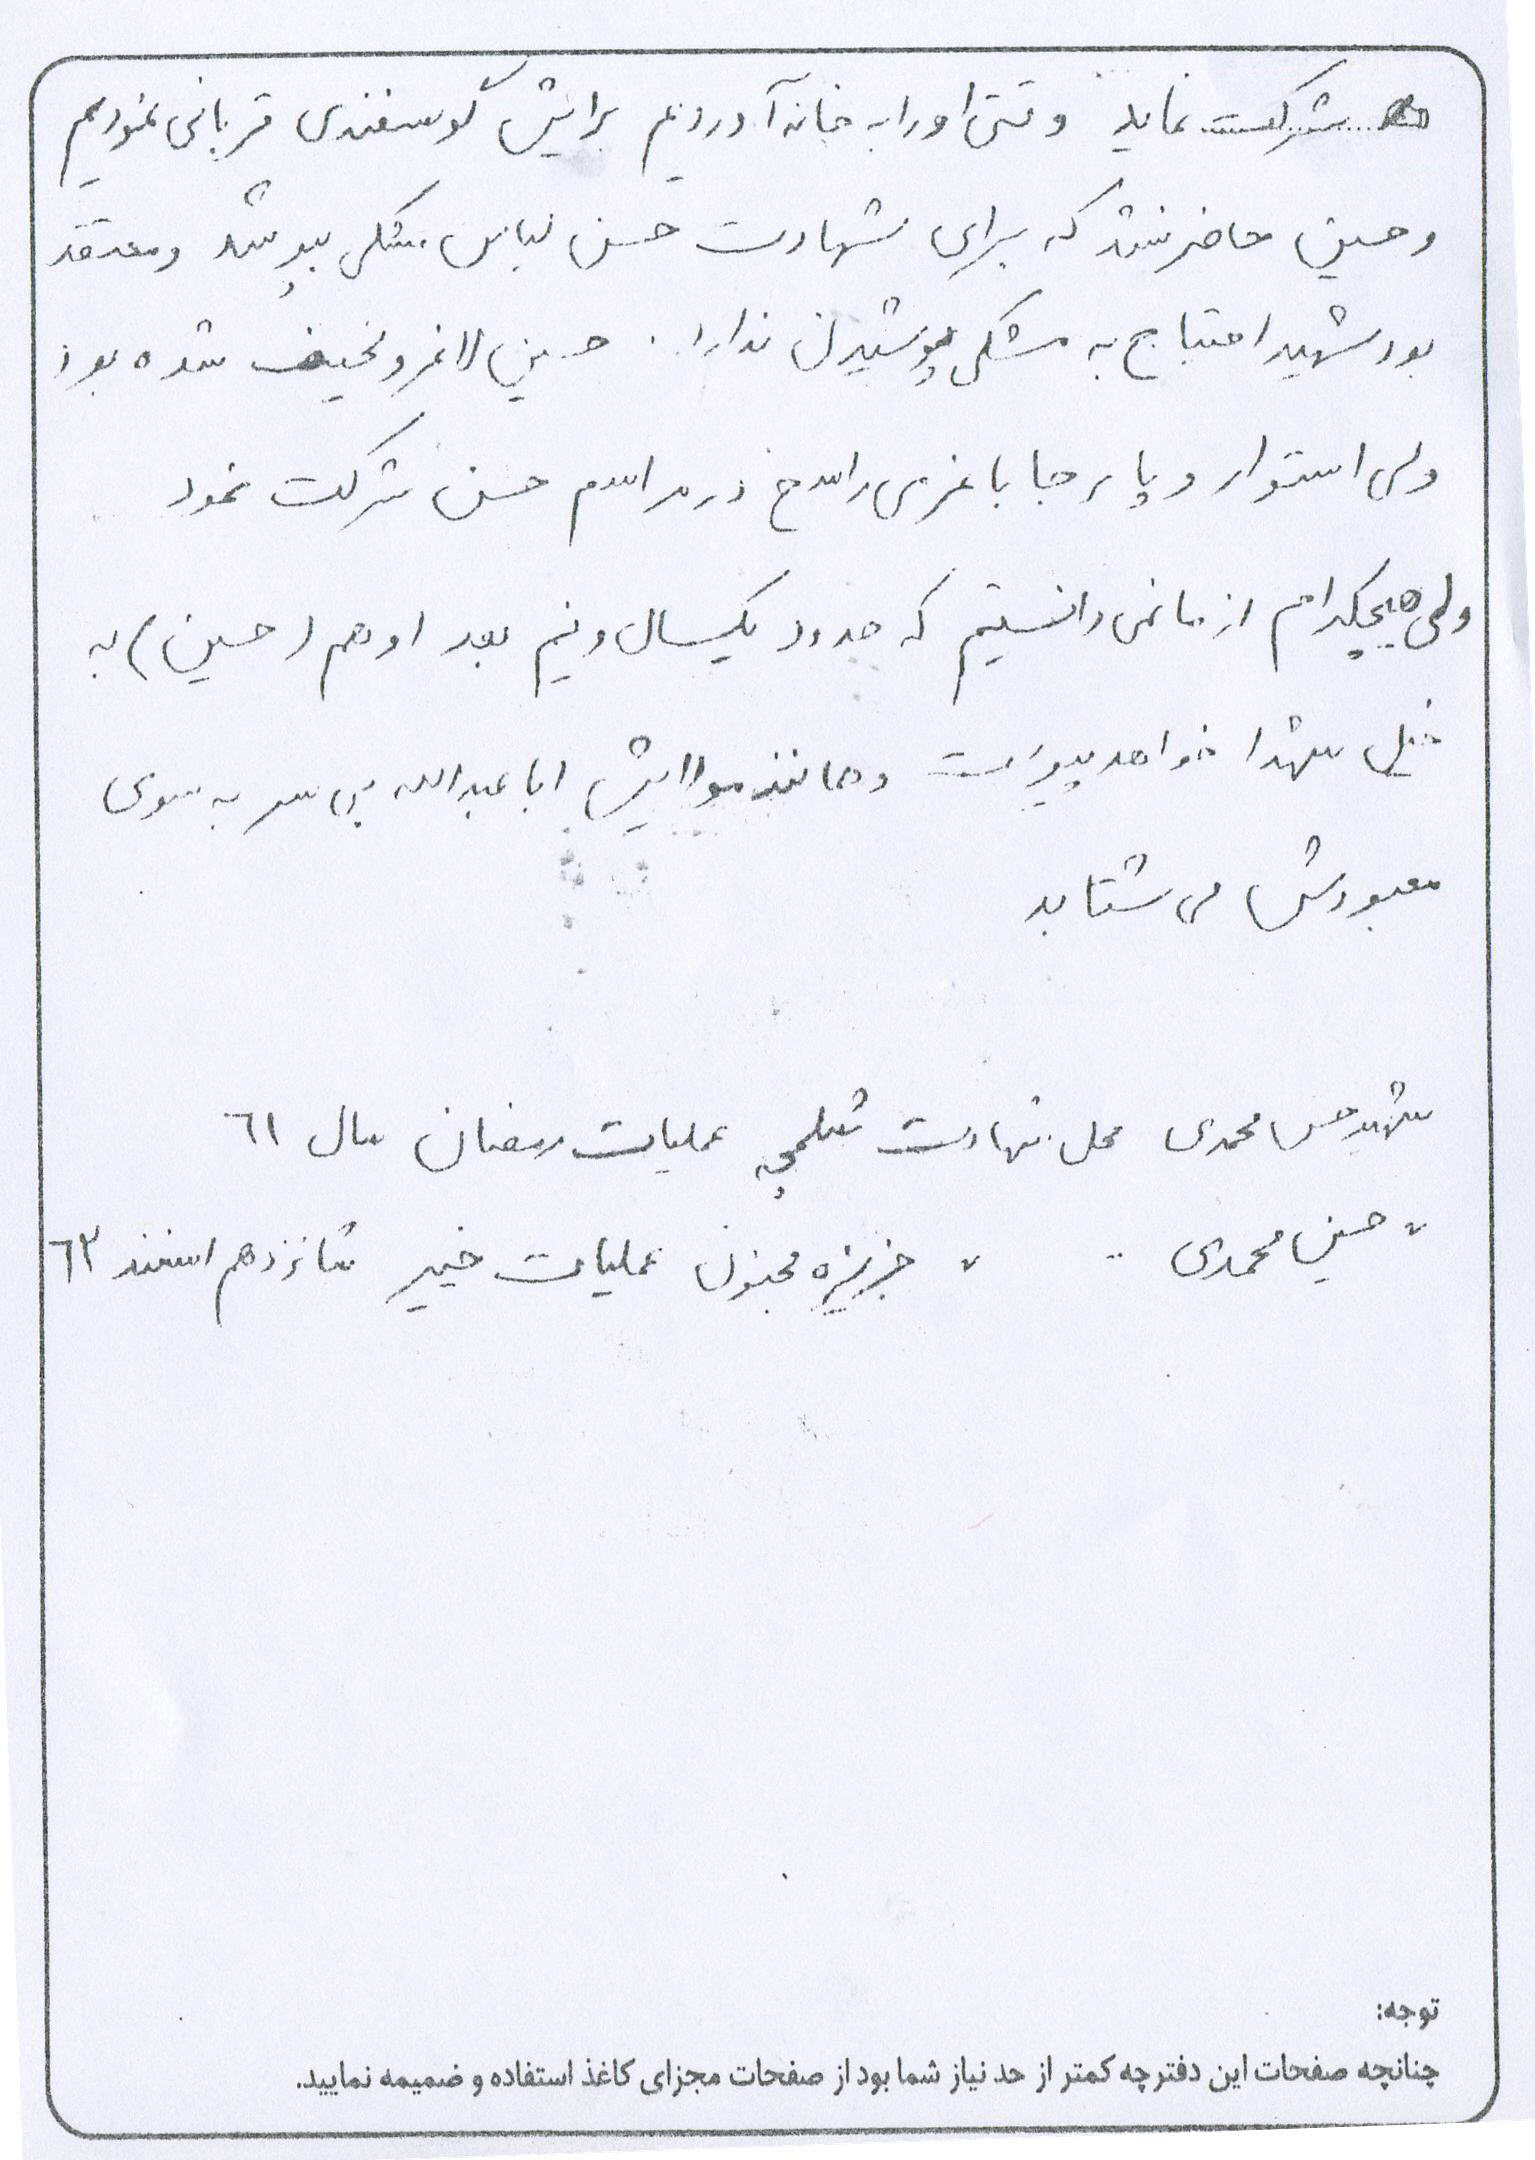 شرکت نماید وقتی او را به خانه آوردیم برایش گوسفندی قربانی نمودیم
و حسین حاضر نشد که برای شهادت حسن لباس مشکی بپوشد و معتقد
بود شهید احتیاج به مشکی پوشیدن ندارد . حسین لاغر و نحیف شده بود
ولی استوار و پا بر جا با عزمی راسخ در مراسم حسن شرکت نمود
ولی هیچکدام از ما نمی دانستیم که حدود یکسال و نیم بعد او هم (حسین) به
خیل شهدا خواهد پیوست و همانند مولایش ابا عبدالله بی سر به سوی
معبودش می شتابد
شهید حسن محمدی محل شهادت شلمچه عملیات رمضان سال ٦١
〃 حسین محمدی 〃 〃 جزیره مجنون عملیات خیبر شانزدهم اسفند ٦٢
توجه:
چنانچه صفحات این دفترچه کمتر از حد نیاز شما بود از صفحات مجزای کاغذ استفاده و ضمیمه نمایید.